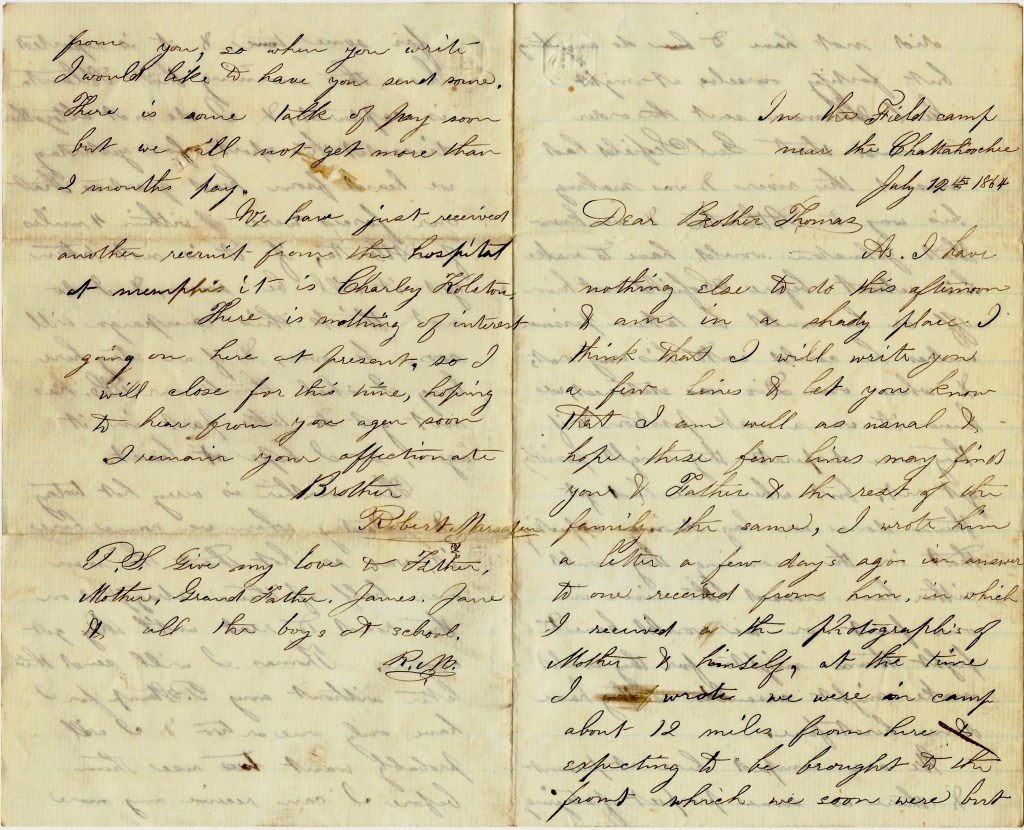 In the Field camp
near the Chattahoochie
July 12th 1864
Dear Brother Thomas
As I have
nothing else to do this afternoon
& am in a shady place I
think that I will write you
a few lines & let you know
that I am well as usual &
hope these few lines may find
you & Father & the rest of the
family the same, I wrote him
a letter a few days ago in answer
to one received from him, in which
I received the photographs of
Mother & himself, at the time
I wrote we were in camp
about 12 miles from here &
expecting to be brought to the
front which we soon were but
from you, so when you write
I would like to have you send some.
There is some talk of pay soon
but we will not get more than
2 months pay.
We have just received
another recruit from the hospital
at memphis it is Charley
There is nothing of interest
going on here at present, so I
will close for this time, hoping
to hear from you agen soon
I remain your affectionate
Brother
Robert
P.S. Give my love to Father,
Mother, Grand Father, James, Jane
& all the boys at school.
R.M.